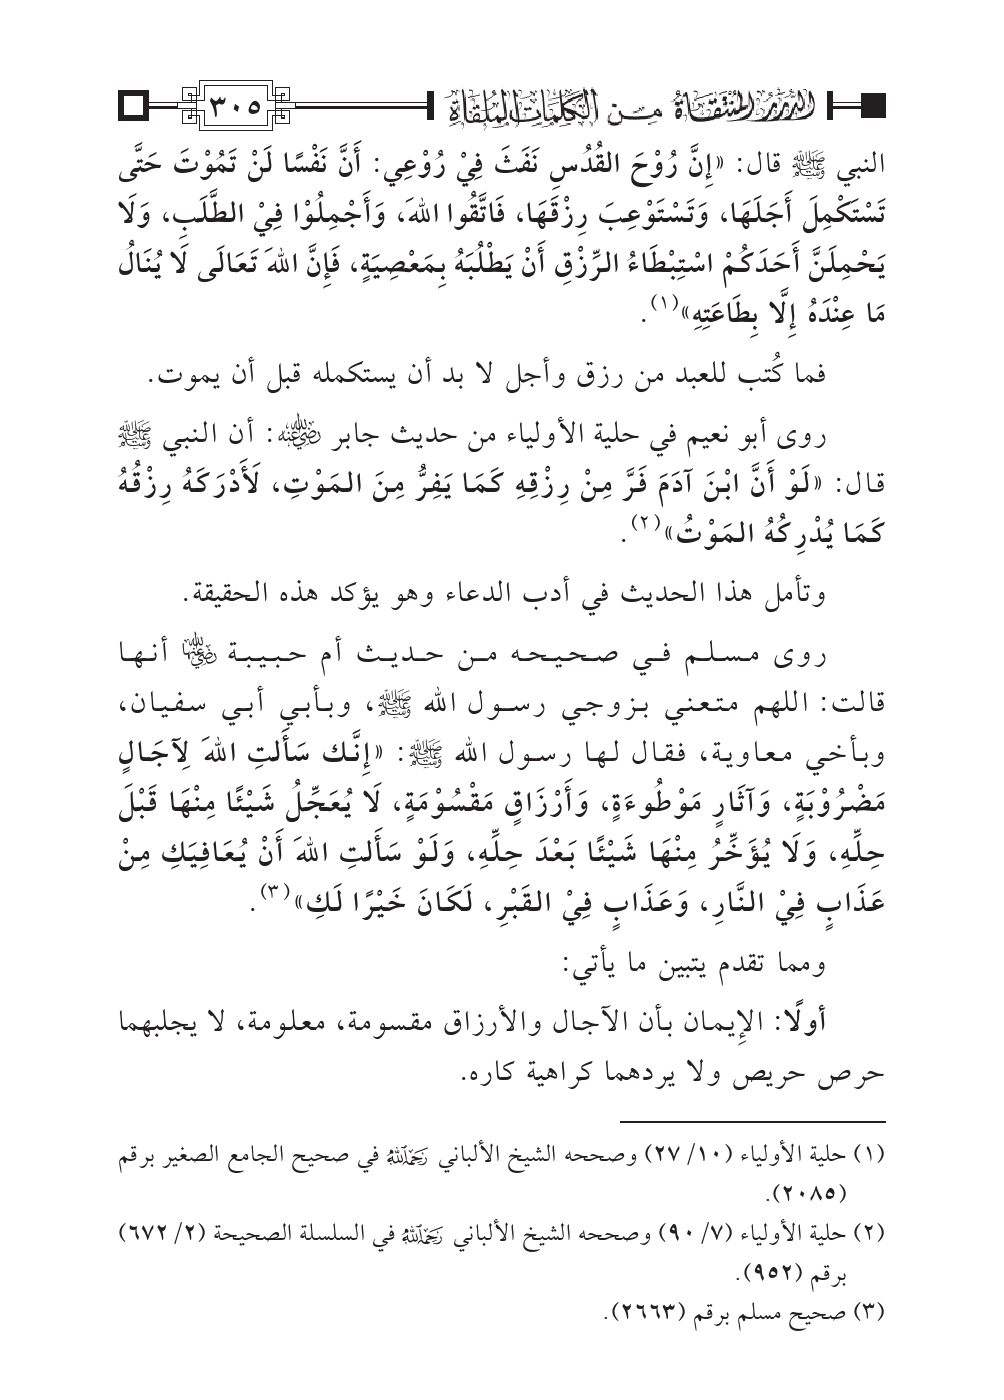 الدُّرَرُ المُنْتَقَاةُ مِـن الكَلِمَاتِ المُلْقَاة ٣٠٥
النبي ﷺ قال: «إِنَّ رُوْحَ القُدُسِ نَفَثَ فِيْ رُوْعِي: أَنَّ نَفْسًا لَنْ تَمُوْتَ حَتَّى
تَسْتَكْمِلَ أَجَلَهَا، وَتَسْتَوْعِبَ رِزْقَهَا، فَاتَّقُوا اللهَ، وَأَجْمِلُوْا فِيْ الطَّلَبِ، وَلَا
يَحْمِلَنَّ أَحَدَكُمْ اسْتِبْطَاءُ الرِّزْقِ أَنْ يَطْلُبَهُ بِمَعْصِيَةٍ، فَإِنَّ اللهَ تَعَالَى لَا يُنَالُ
مَا عِنْدَهُ إِلَّا بِطَاعَتِهِ»(١).
فما كُتب للعبد من رزق وأجل لا بد أن يستكمله قبل أن يموت.
روى أبو نعيم في حلية الأولياء من حديث جابر رضي الله عنه: أن النبي ﷺ
قال: «لَوْ أَنَّ ابْنَ آدَمَ فَرَّ مِنْ رِزْقِهِ كَمَا يَفِرُّ مِنَ المَوْتِ، لَأَدْرَكَهُ رِزْقُهُ
كَمَا يُدْرِكُهُ المَوْتُ»(٢).
وتأمل هذا الحديث في أدب الدعاء وهو يؤكد هذه الحقيقة.
روى مسلم في صحيحه من حديث أم حبيبة رضي الله عنها أنها
قالت: اللهم متعني بزوجي رسول الله ﷺ، وبأبي أبي سفيان،
وبأخي معاوية، فقال لها رسول الله ﷺ: «إِنَّك سَأَلتِ اللهَ لِآجَالٍ
مَضْرُوْبَةٍ، وَآثَارٍ مَوْطُوءَةٍ، وَأَرْزَاقٍ مَقْسُوْمَةٍ، لَا يُعَجِّلُ شَيْئًا مِنْهَا قَبْلَ
حِلِّهِ، وَلَا يُؤَخِّرُ مِنْهَا شَيْئًا بَعْدَ حِلِّهِ، وَلَوْ سَأَلتِ اللهَ أَنْ يُعَافِيَكِ مِنْ
عَذَابٍ فِيْ النَّارِ، وَعَذَابٍ فِيْ القَبْرِ، لَكَانَ خَيْرًا لَكِ»(٣).
ومما تقدم يتبين ما يأتي:
أولًا: الإِيمان بأن الآجال والأرزاق مقسومة، معلومة، لا يجلبهما
حرص حريص ولا يردهما كراهية كاره.
(١) حلية الأولياء (١٠/ ٢٧) وصححه الشيخ الألباني رحمه الله في صحيح الجامع الصغير برقم
(٢٠٨٥).
(٢) حلية الأولياء (٧/ ٩٠) وصححه الشيخ الألباني رحمه الله في السلسلة الصحيحة (٢/ ٦٧٢)
برقم (٩٥٢).
(٣) صحيح مسلم برقم (٢٦٦٣).